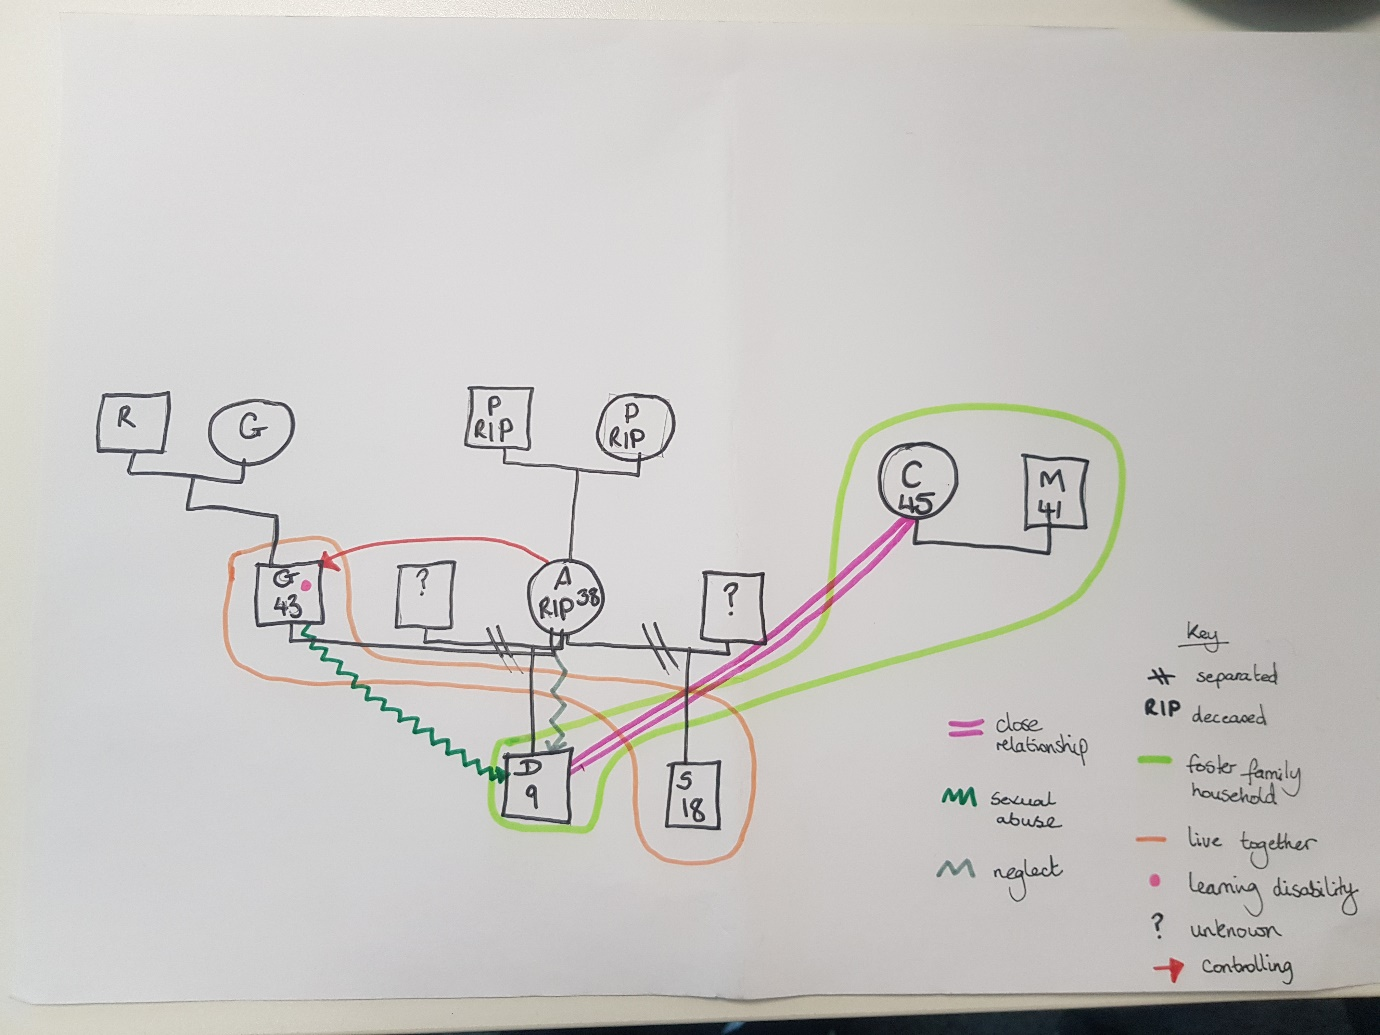 R
G
P
RIP
P
RIP
C
45
M
41
G
43
?
A
RIP 38
?
D
9
S
18
close
relationship
sexual
abuse
neglect
Key
separated
RIP deceased
foster family
household
live together
learning disability
? unknown
controlling